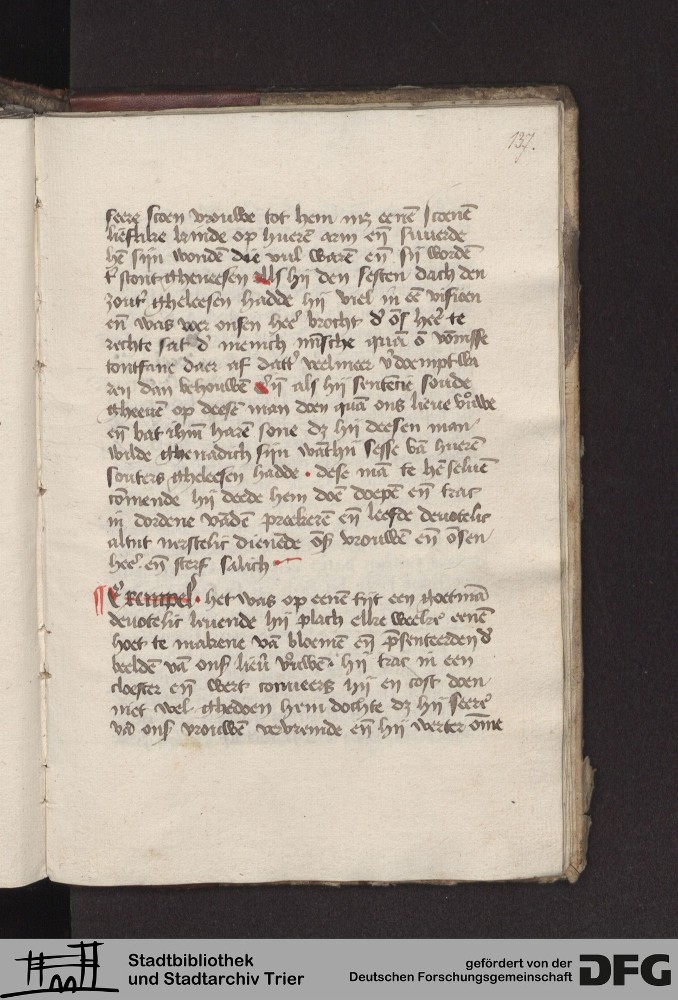 137.
seere scoen vrouwe tot hem mz eenē scoenē
op huerē arm eñ suuerde
hē sijn wondē die vul warē eñ sij wordē
stont ghenesen Als hij den sesten dach den
zout' gheleesen hadde hij viel in eē visioen
eñ was voer onsen hee' brocht d' ōs hee' te
rechte sat d' menich mīsche quā ō vōnisse
tontfane daer af datt' veelmeer v'doempt wa
ren dan behouwē Eñ als hij sentecie soude
gheuen op deesē man doen quā ons lieue vrouwe
eñ bat ihm̄ harē sone dz hij deesen man
wilde ghenadich sijn wāthij sesse vā huerē
souters gheleesen hadde · dese mā te hē seluē
comende hij deede hem doē doepē eñ trac
in dordene vādē preekerē eñ leefde deuotelic
altijt nerstelic dienēde ōs vrouwē eñ ōsen
hee' eñ sterf salich ·
Exempel · het was op eenē tijt een goet mā
deuotelic leuende hij plach elke weeke eenē
hoet te makene vā bloemē eñ p̄senteerden d'
beeldē vā ons lieu' vrouwē · hij trac in een
cloester eñ wert conuers hij en cost doen
niet wel ghedoen hem dochte dz hij seere
vā ons vrouwē vervremde eñ hij werter ōme
Stadtbibliothek
und Stadtarchiv Trier
gefördert von der
Deutschen Forschungsgemeinschaft
DFG